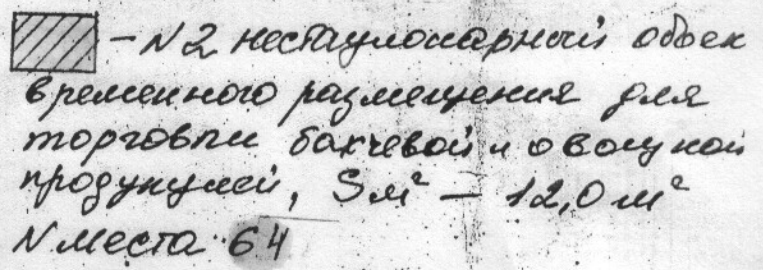 – N 2 нестационарный объек
временного размещения для
торговли бахчевой и овощной
продукцией, Sм² – 12,0 м²
N места 64